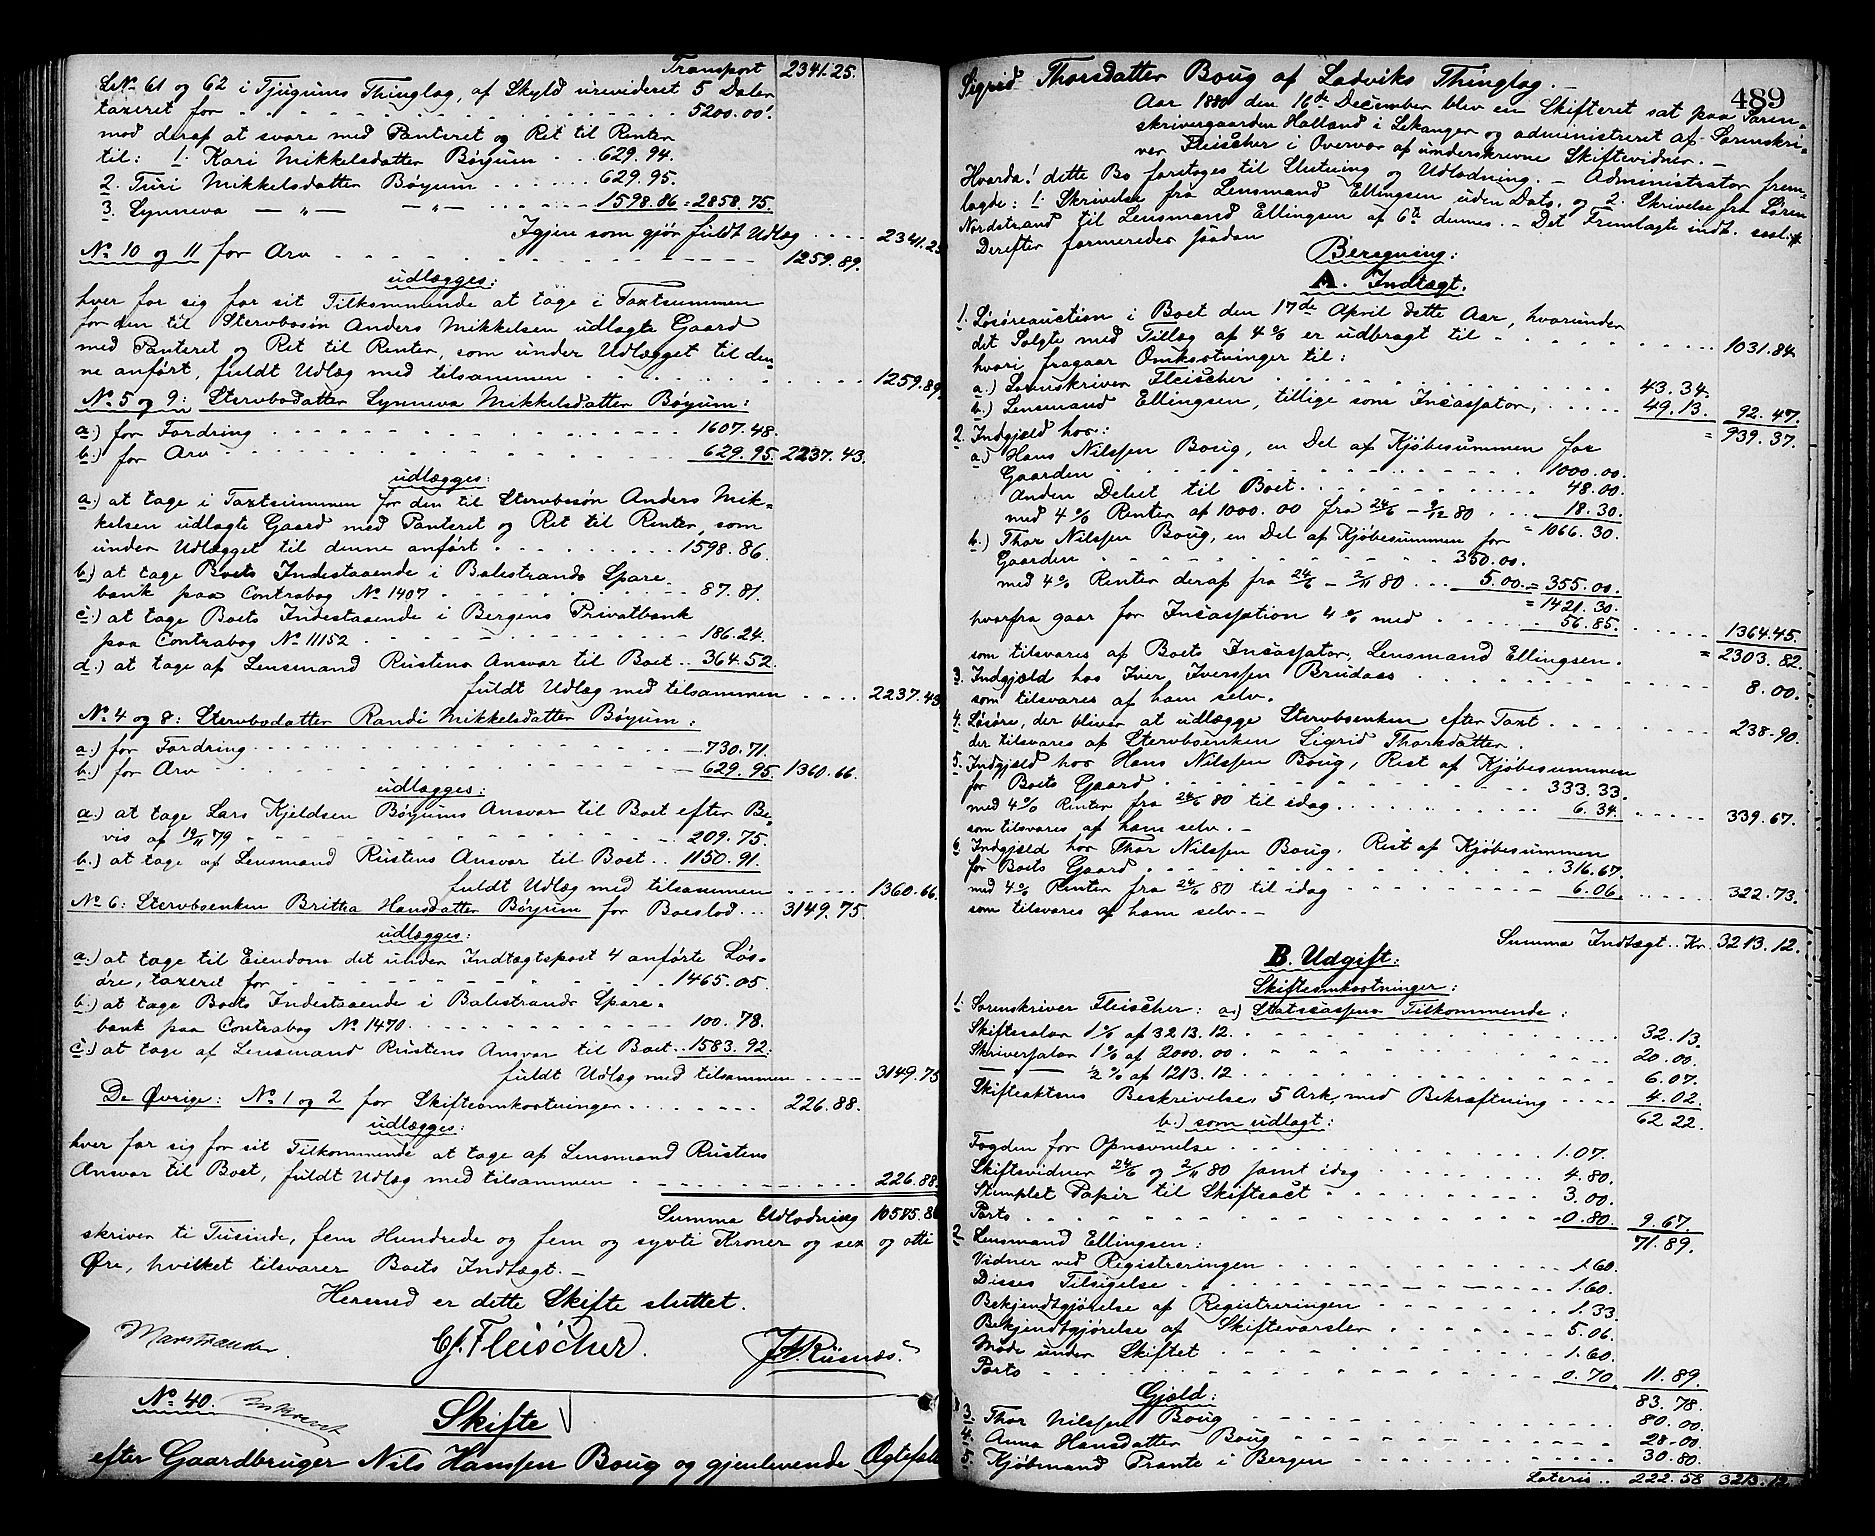 Transport 2341.25.
LNo 61 og 62 i Tjugums Thinglag, af Skyld urevideret 5 Daler
taxeret for - - - - 5200.00!
mod deraf at svare med Panteret og Ret til Renter
til: 1. Kari Mikkelsdatter Bøyum . . 629.94.
2. Turi Mikkelsdatter Bøyum . . . . . . 629.95.
3. Synneva — „ — — „ — . . . . 1598.86 = 2858.75.
Igjen som gjør fuldt Udlæg . . . . 2341.25
No 10 og 11 for Arv - - - - 1259.89.
udlægges:
hver for sig for sit Tilkommende at tage i Taxtsummen
for den til Stervbosøn Anders Mikkelsen udlagte Gaard
med Panteret og Ret til Renter, som under Udlægget til den-
ne anført, fuldt Udlæg med tilsammen . . . . 1259.89
No 5 og 9: Stervbodatter Synneva Mikkelsdatter Bøyum:
a.) for Fordring - - - - 1607.48.
b.) for Arv - - - - 629.95. 2237.43.
udlægges:
a.) at tage i Taxtsummen for den til Stervbosøn Anders Mik-
kelsen udlagte Gaard med Panteret og Ret til Renter, som
under Udlægget til denne anført . . . . 1598.86.
b.) at tage Boets Indestaaende i Balestrands Spare-
bank paa Contrabog No 1407 . . . . 87.81.
c.) at tage Boets Indestaaende i Bergens Privatbank
paa Contrabog No 11152 . . . . 186.24.
d.) at tage af Lensmand Rustens Ansvar til Boet . . 364.52.
fuldt Udlæg med tilsammen . . . . 2237.43
No 4 og 8: Stervbodatter Randi Mikkelsdatter Bøyum:
a.) for Fordring . . . . 730.71.
b.) for Arv . . . . 629.95 1360.66.
udlægges:
a.) at tage Lars Kjeldsen Bøyums Ansvar til Boet efter Be-
vis af 19/11 79 - - - - 209.75.
b.) at tage af Lensmand Rustens Ansvar til Boet . . 1150.91.
fuldt Udlæg med tilsammen . . . . 1360.66
No 6: Stervboenken Brittha Hansdatter Bøyum for Boeslod . . . 3149.75.
udlægges:
a.) at tage til Eiendom det under Indtægtspost 4 anførte Løs-
øre, taxeret for . . . . 1465.05.
b.) at tage Boets Indestaaende i Balestrands Spare-
bank paa Contrabog No 1470 . . . . 100.78.
c.) at tage af Lensmand Rustens Ansvar til Boet . . 1583.92.
fuldt Udlæg med tilsammen . . . . 3149.75
De Øvrige: No 1 og 2 for Skifteomkostninger . . . . 226.88.
udlægges:
hver for sig for sit Tilkommende at tage af Lensmand Rustens
Ansvar til Boet, fuldt Udlæg med tilsammen . . . . 226.88.
Summa Udlodning 10575.86
skriver ti Tusinde, fem Hundrede og fem og sytti Kroner og sex og otti
Øre, hvilket tilsvarer Boets Indtægt. —
Hermed er dette Skifte sluttet.
CJ. Fleischer. JARusnes.
No 40.
Skifte
efter Gaardbruger Nils Hanssen Boug og gjenlevende Ægtefælle
489
Sigrid Thorsdatter Boug af Ladviks Thinglag. —
Aar 1880 den 16de December blev en Skifteret sat paa Soren-
skrivergaarden Halland i Lekanger og administreret af Sorenskri-
ver Fleischer i Overvær af underskrevne Skiftevidner. —
Hvorda! dette Bo foretoges til Slutning og Udlodning. — Administrator frem-
lagde: 1. Skrivelse fra Lensmand Ellingsen uden Dato, og 2. Skrivelse fra Søren
Nordstrand til Lensmand Ellingsen af 6te dennes. — Det Fremlagte indt. saal:
Derefter formeredes saadan
Beregning:
A. Indtægt.
1. Løsøreauction i Boet den 17de April dette Aar, hvorunder
det Solgte med Tillæg af 4 % er udbragt til . . . . 1031.84.
hvori fragaar Omkostninger til:
a.) Sorenskriver Fleischer . . . . 43.34.
b.) Lensmand Ellingsen, tillige som Incassator, . . . . 49.13. 92.47.
= 939.37.
2. Indgjæld hos:
a.) Hans Nilssen Boug, en Del af Kjøbesummen for
Gaarden . . . . 1000.00.
Anden Debet til Boet . . . . 48.00.
med 4 % Renter af 1000.00 fra 24/6 – 9/12 80 . . . 18.30.
= 1066.30.
b.) Thor Nilssen Boug, en Del af Kjøbesummen for
Gaarden - - - - 350.00.
med 4 % Renter deraf fra 24/6 – 2/11 80 . . . 5.00. = 355.00.
= 1421.30.
hvorfra gaar for Incassation 4 % med . . . . 56.85. 1364.45.
som tilsvares af Boets Incassator, Lensmand Ellingsen. = 2303.82.
3. Indgjæld hos Iver Iverssen Brudaas . . . . 8.00.
som tilsvares af ham selv.
4. Løsøre, der bliver at udlægge Stervboenken efter Taxt . . . . 238.90.
der tilsvares af Stervboenken Sigrid Thorsdatter.
5. Indgjæld hos Hans Nilssen Boug, Rest af Kjøbesummen
for Boets Gaard . . . . 333.33.
med 4 % Renter fra 24/6 80 til idag . . . . 6.34. 339.67.
som tilsvares af ham selv. —
6. Indgjæld hos Thor Nilssen Boug, Rest af Kjøbesummen
for Boets Gaard . . . . 316.67.
med 4 % Renter fra 24/6 80 til idag . . . . 6.06. 322.73.
som tilsvares af ham selv. —
Summa Indtægt . . Kr. 3213.12.
B. Udgift:
Skifteomkostninger:
1. Sorenskriver Fleischer: a.) Statscassens Tilkommende:
Skiftesalær 1 % af 3213.12 . . . . 32.13.
Skriversalær 1 % af 2000.00 . . . . 20.00.
— „ — 1/2 % af 1213.12 . . . . 6.07.
Skifteaktens Beskrivelse 5 Ark, med Bekræftning . . . . 4.02.
62.22.
b.) som udlagt:
Fogden for Opnævnelse . . . . 1.07.
Skiftevidner 24/6 og 2/11 80 samt idag . . . . 4.80.
Stemplet Papir til Skifteact . . . . 3.00.
Porto . . . . 0.80. 9.67.
71.89.
2. Lensmand Ellingsen:
Vidner ved Registreringen . . . . 1.60.
Disses Tilsigelse . . . . 1.60.
Bekjendtgjørelse af Registreringen . . . . 1.33
Bekjendtgjørelse af Skiftevarsler . . . . 5.06.
Møde under Skiftet . . . . 1.60.
Porto . . . . 0.70 11.89.
83.78.
Gjæld:
3. Thor Nilssen Boug . . . . 80.00.
4. Anna Hansdatter Boug . . . . 28.00.
5. Kjøbmand Trante i Bergen . . . . 30.80.
Lateris . . 222.58 3213.12.